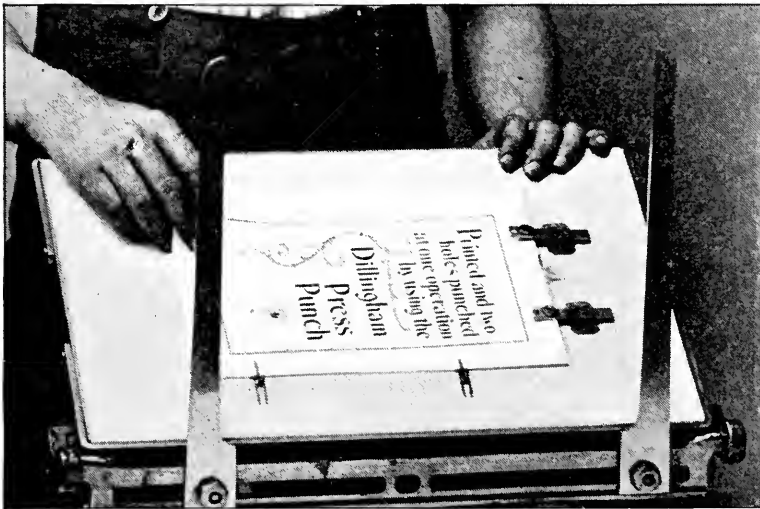 Printed and two
holes punched
in one operation
by using the
Dillingham
Press
Punch